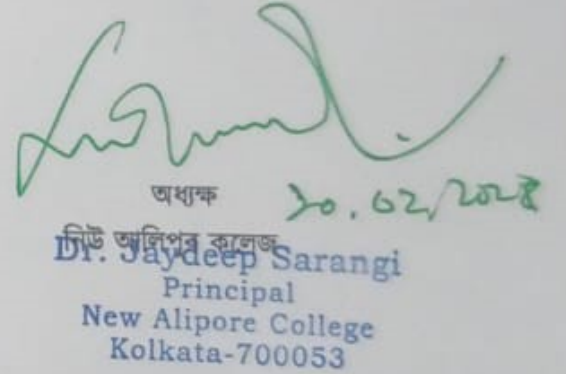 অধ্যক্ষ
নিউ আলিপুর কলেজ
Dr. Jaydeep Sarangi
Principal
New Alipore College
Kolkata-700053